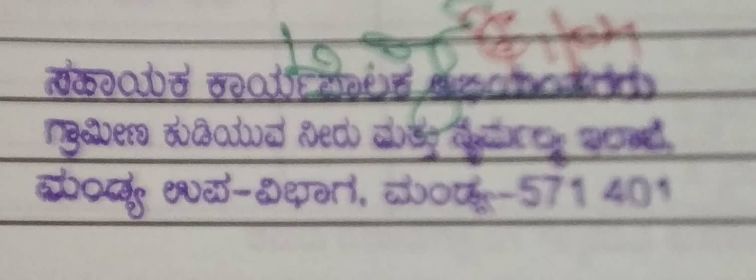 ಸಹಾಯಕ ಕಾರ್ಯಪಾಲಕ ಅಭಿಯಂತರರು
ಗ್ರಾಮೀಣ ಕುಡಿಯುವ ನೀರು ಮತ್ತು ನೈರ್ಮಲ್ಯ ಇಲಾಖೆ,
ಮಂಡ್ಯ ಉಪ-ವಿಭಾಗ, ಮಂಡ್ಯ-571 401